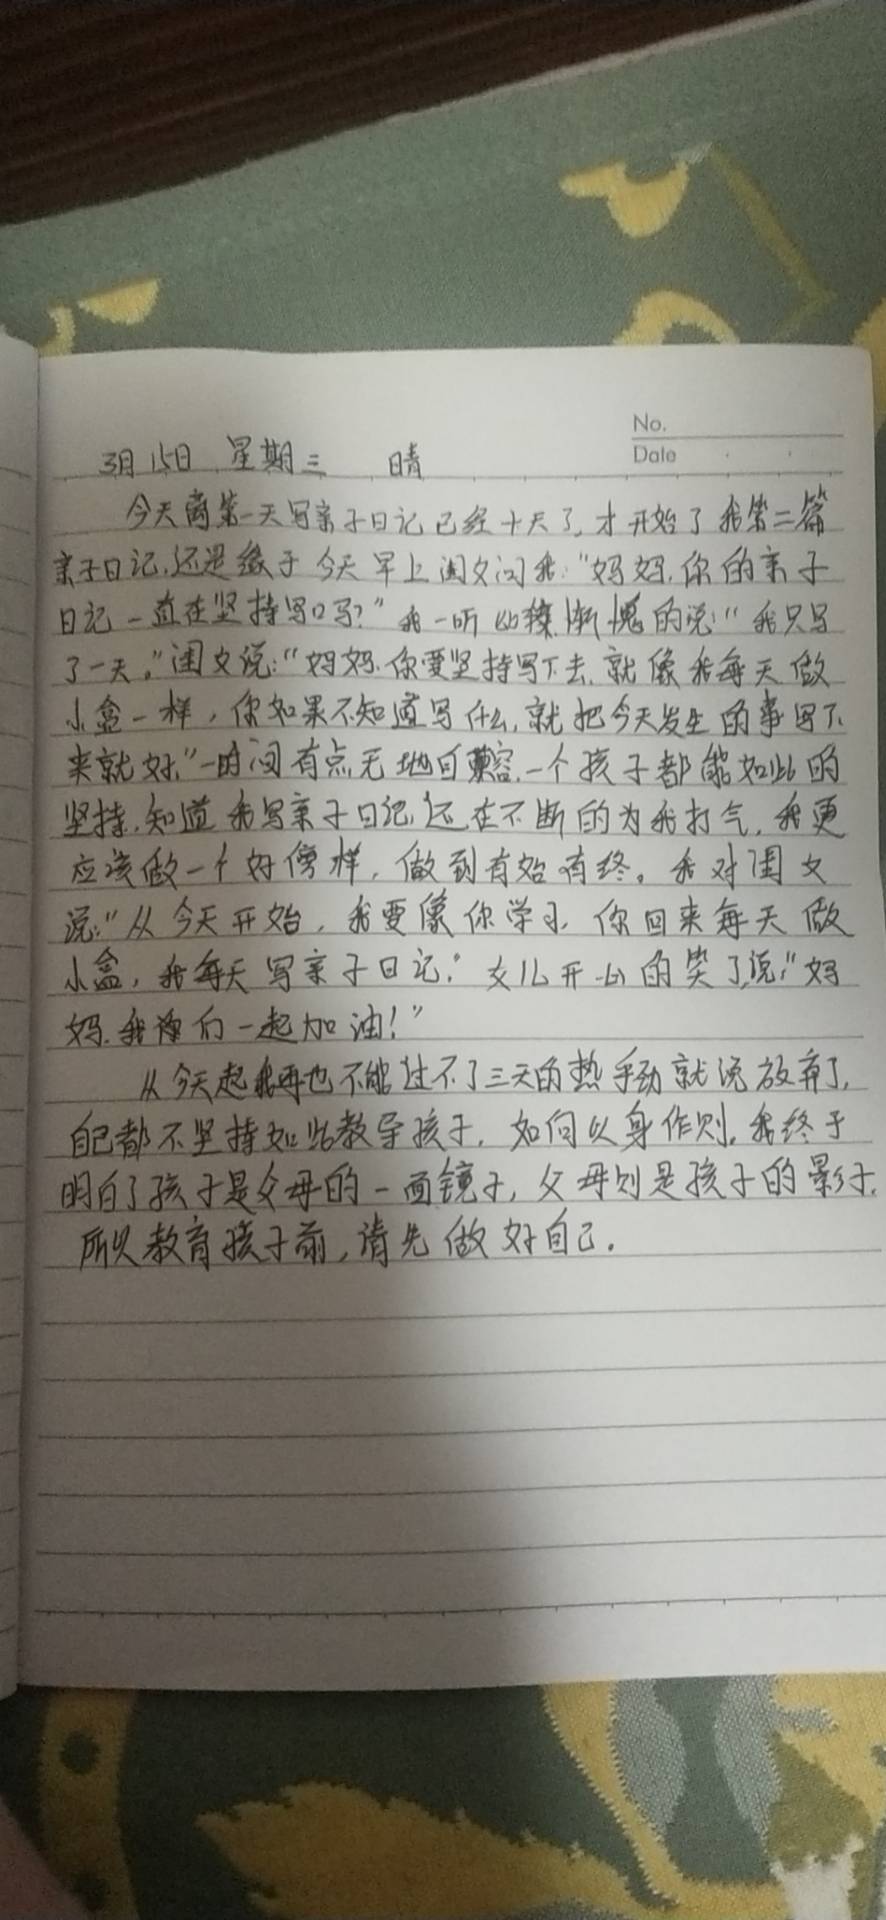 No.
Date
3月15日 星期三 晴
今天离第一天写亲子日记已经十天了,才开始了我第二篇
亲子日记,还是缘于今天早上闺女问我:“妈妈,你的亲子
日记一直在坚持写吗?”我一听 惭愧的说:“我只写
了一天。”闺女说:“妈妈,你要坚持写下去,就像我每天做
小盒一样,你如果不知道写什么,就把今天发生的事写下
来就好。”一时间有点无地自容,一个孩子都能如此的
坚持,知道我写亲子日记,还在不断的为我打气,我更
应该做一个好傍样,做到有始有终。我对闺女
说:“从今天开始,我要像你学习,你回来每天做
小盒,我每天写亲子日记。”女儿开心的笑了,说:“妈
妈,我们一起加油!”
从今天起我再也不能过不了三天的热乎劲就说放弃了,
自己都不坚持如此教导孩子,如何以身作则,我终于
明白了孩子是父母的一面镜子,父母则是孩子的影子,
所以教育孩子前,请先做好自己。